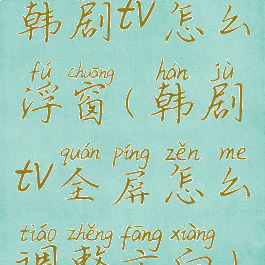 韩剧tv怎么
fú chuāng hán jù
浮窗(韩剧
quán píng zěn me
tv全屏怎么
tiáo zhěng fāng xiàng
调整方向)